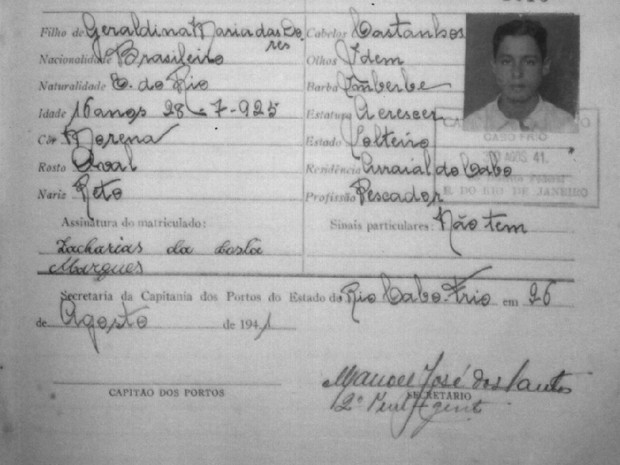 Filho de Geraldina Maria das Dores Cabelos Castanhos
Nacionalidade Brasileiro Olhos Idem
Naturalidade E. do Rio Barba Imberbe
Idade 16 anos 28-7-925 Estatura A crescer
Côr Morena Estado Solteiro
Rosto Oval Residência Arraial do Cabo
Nariz Reto Profissão Pescador
Assinatura do matriculado: Sinais particulares: Não tem
Zacharias da Costa
Marques
CABO FRIO
AGOS 41.
E. DO RIO DE JANEIRO
Secretaria da Capitania dos Portos do Estado do Rio Cabo-Frio em 26
de Agosto de 1941
Manoel José dos Santos
CAPITÃO DOS PORTOS SECRETÁRIO